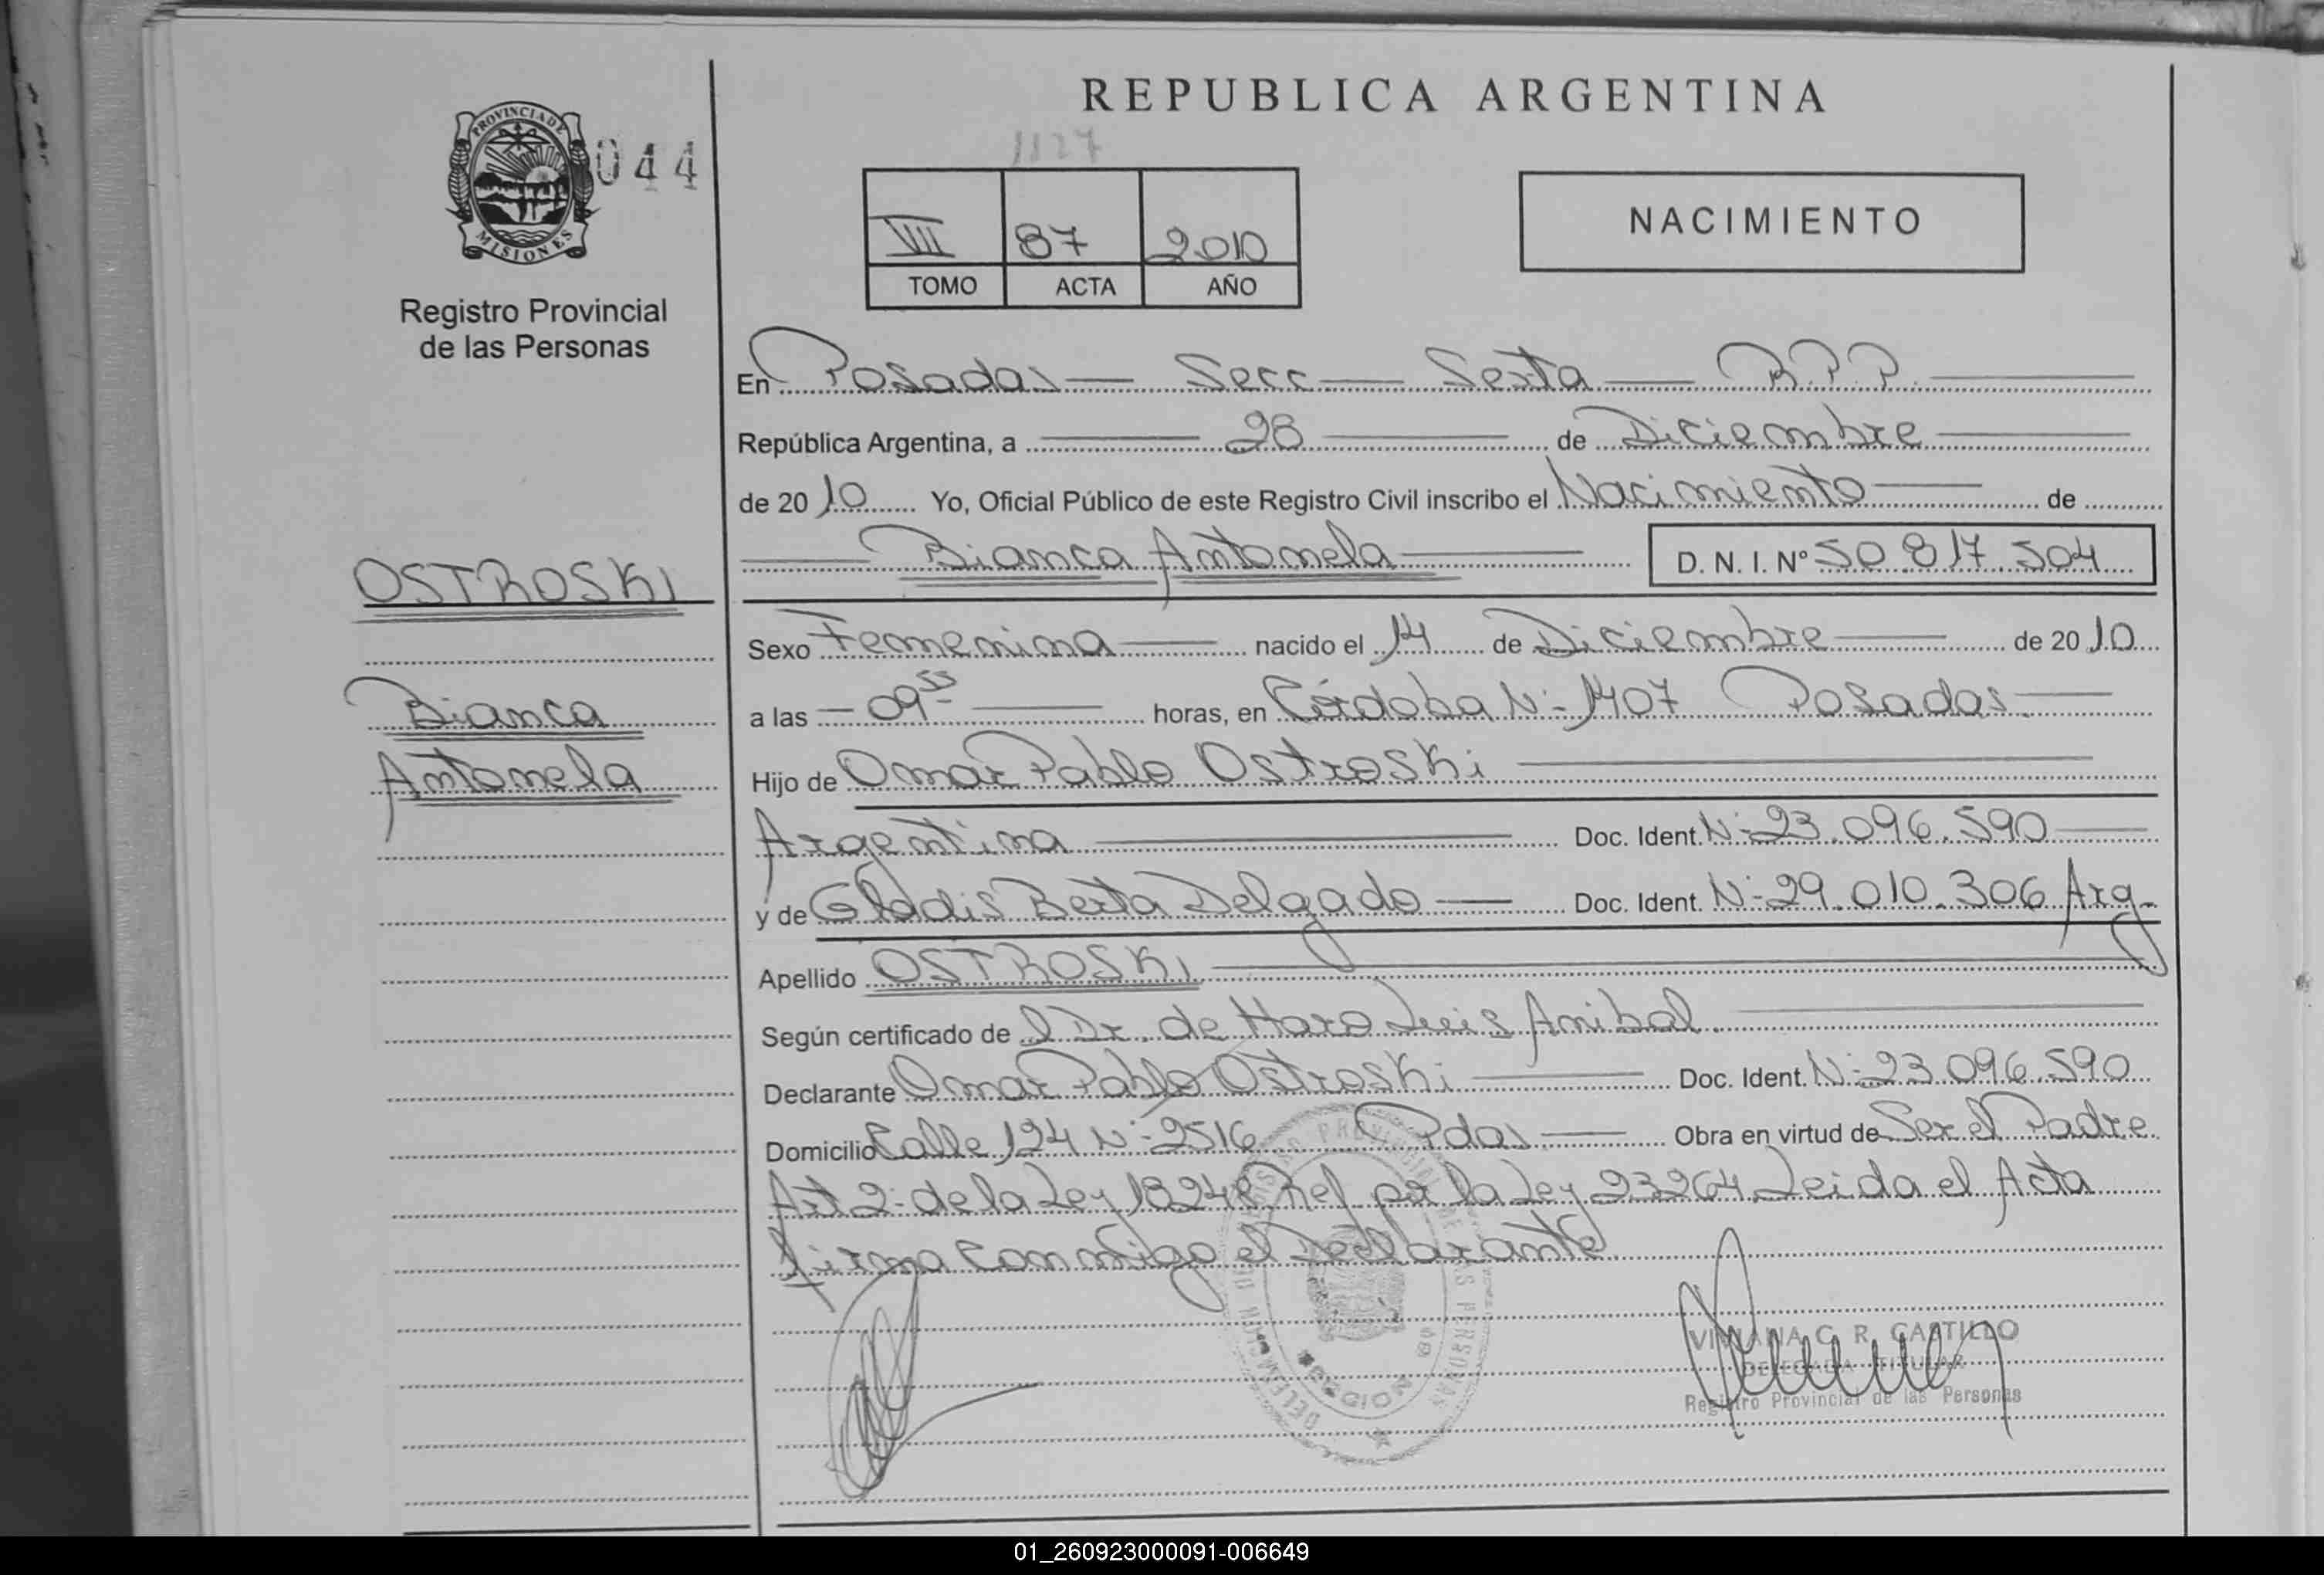 REPUBLICA ARGENTINA
PROVINCIA DE
MISIONES
044
Registro Provincial
de las Personas
1127
VII 87 2010
TOMO ACTA AÑO
NACIMIENTO
En Posadas — Secc — Sexta — R.P.P.
República Argentina, a 28 de Diciembre
de 2010 Yo, Oficial Público de este Registro Civil inscribo el Nacimiento de
Bianca Antonela D. N. I. Nº 50.817.504
OSTROSKI
Sexo Femenina nacido el 14 de Diciembre de 2010
Bianca
a las 09 55 horas, en Córdoba Nº 1407 Posadas
Antonela
Hijo de Omar Pablo Ostroski
Argentina Doc. Ident. Nº 23.096.590
y de Gladis Berta Delgado Doc. Ident. Nº 29.010.306 Arg.
Apellido OSTROSKI
Según certificado de l Dr. de Haro Luis Anibal
Declarante Omar Pablo Ostroski Doc. Ident. Nº 23.096.590
Domicilio Calle 124 Nº 2516 Pdas Obra en virtud de Ser el Padre
Art 2º de la Ley 18248 Ref. por la Ley 23264 Leida el Acta
firma conmigo el Declarante
VIVIANA C. R. CASTILLO
DELEGADA TITULAR
Registro Provincial de las Personas
01_260923000091-006649